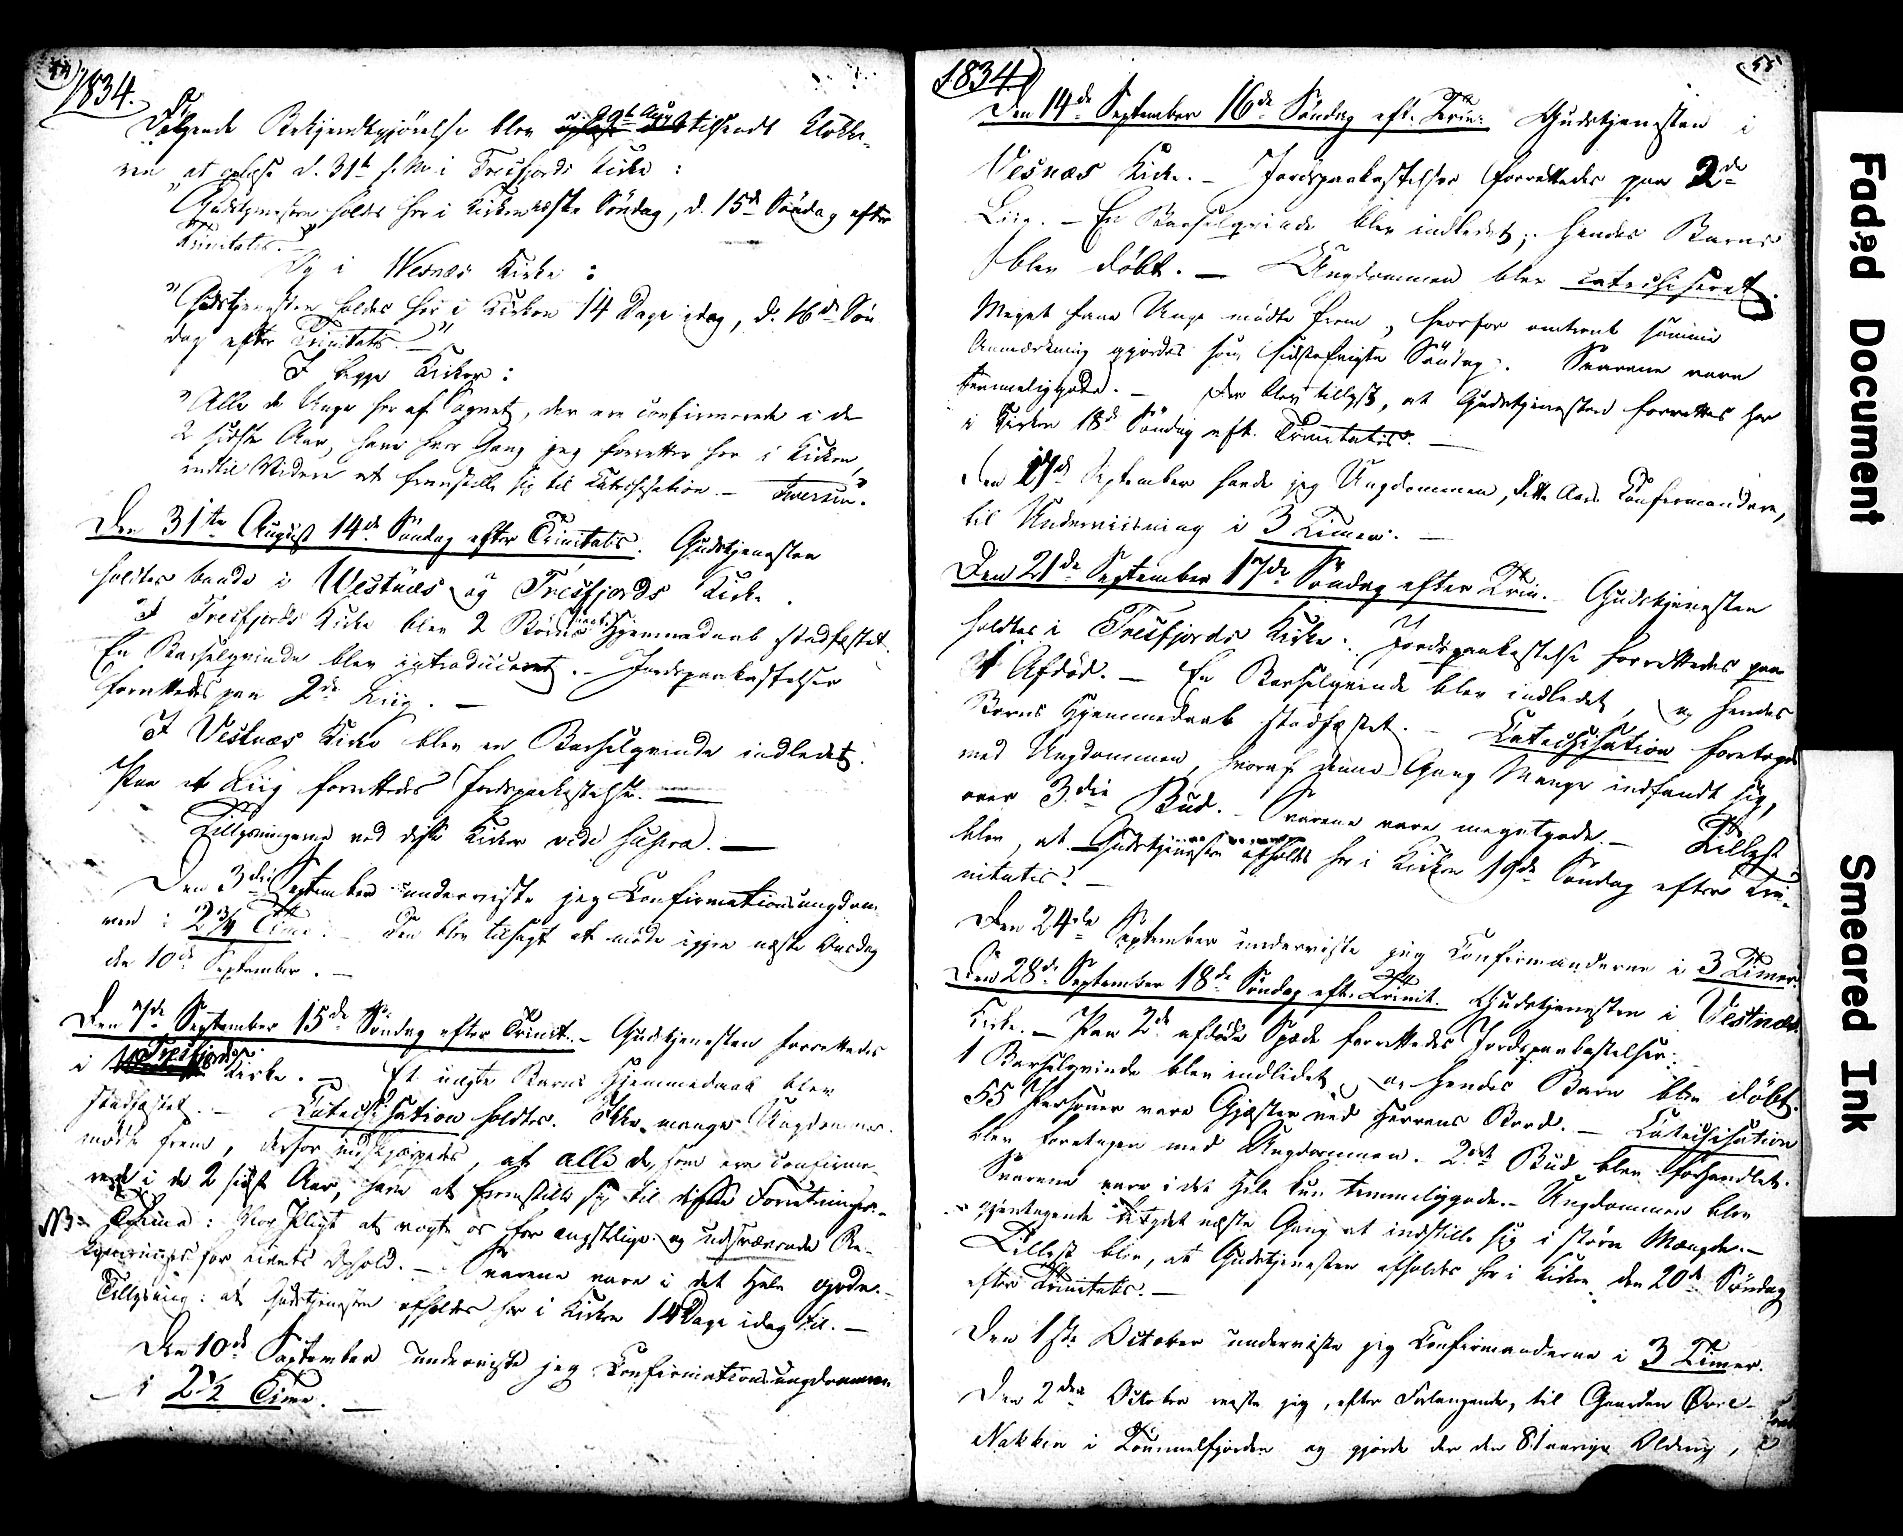 54)
1834.
Følgende Bekjendtgjørelse blev d. 29de Aug. tilsendt Klokke-
ren, at oplæse d. 31te s. M. i Tresfjords Kirke:
"Gudstjenesten holdes her i Kirken næste Söndag, d. 15de Söndag efter
Trinitatis."
Og i Vesnæs Kirke:
"Gudstjenesten holdes her i Kirken 14 Dage idag, d. 16de Søn
dag efter Trinitatis."
I begge Kirker:
"Alle de Unge her af Sognet, der ere confirmerede i de
2 sidste Aar, have hver Gang jeg forretter her i Kirken,
indtil Videre at fremstille sig til Katechisation. -
Den 31te August 14de Söndag efter Trinitatis. Gudstjenesten
holdtes baade i Westnæs og Tresfjords Kirke.
I Tresfjords Kirke blev 2 Börns Hjemmedaab stadfæstet.
En Barselqvinde blev introduceret. - Jordspaakastelser
forrettedes paa 2de Liig. -
I Vestnæs Kirke blev en Barselqvinde indledet.
Paa et Liig forrettedes Jordspaakastelse. -
Tillysningerne ved disse Kirker vide supra. -
Den 3die September underviste jeg Confirmationsungdom-
men i 2 3/4 Time. - Den blev tilsagt at møde igjen næste Onsdag
den 10de September. -
Den 7de September 15de Söndag efter Trinit. - Gudstjenesten forrettedes
i Tresfjords Kirke. - Et uægte Barns Hjemmedaab blev
stadfæstet. - Catechisation holdtes. Ikke mange Ungdommer
mødte frem, derfor indskjærpedes, at alle de, som ere confirme-
rede i de 2 sidste Aar, have at fremstille sig til disse Forretninger. -
NB: Thema: Vor Pligt at vogte os for ængstlige og udsvævende Be-
kymringer for Livets Ophold. - Svarene vare i det Hele gode. -
Tillysning: at Gudstjenesten afholdes her i Kirken 14 Dage idag til. -
Den 10de September underviste jeg Confirmationsungdommen
i 2 1/2 Time. -
1834)
(55
Den 14de September 16de Söndag eft. Trin: Gudstjenesten i
Vesnæs Kirke. - Jordspaakastelser forrettedes paa 2de
Liig. - En Barselqvinde blev indledet; hendes Barn
blev döbt. - Ungdommen blev catechiseret.
Meget faae Unge mödte frem, hvorfor omtrent samme
Anmærkning gjordes som sidstafvigte Söndag. Svarene vare
temmeliggode. - Der blev tillyst, at Gudstjenesten forrettes her
i Kirken 18de Söndag eft. Trinitatis. -
Den 17de September havde jeg Ungdommen, dette Aars Confirmandere,
til Underviisning i 3 Timer. -
Den 21de September 17de Söndag efter Trin. Gudstjenesten
holdtes i Tresfjords Kirke. Jordspaakastelse forrettedes paa
et Afdöd. - En Barselqvinde blev indledet, og hendes
Barns Hjemmedaab stadfæstet. - Catechisation foretoges
med Ungdommen, hvoraf denne Gang Mange indfandt sig,
over 3die Bud. - Svarene vare megetgode. - Tillyst
blev, at Gudstjenesten afholdes her i Kirken 19de Söndag efter Tri-
nitatis. -
Den 24de September underviste jeg Confirmanderne i 3 Timer.
Den 28de September 18de Söndag eft. Trinit. Gudstjenesten i Vestnæs
Kirke. - Paa 2de afdöde Spæde forrettedes Jordspaakastelser.
1 Barselqvinde blev indledet, og hendes Barn blev döbt.
55 Personer vare Gjæster ved Herrens Bord. - Catechisation
blev foretagen med Ungdommen. 2det Bud blev forhandlet.
Svarene vare i det Hele kun temmeliggode. - Ungdommen blev
gjentagende betydet næste Gang at indstille sig i större Mængde. -
Tillyst blev, at Gudstjenesten afholdes her i Kirken den 20de Söndag
efter Trinitatis. -
Den 1ste October underviste jeg Confirmanderne i 3 Timer.
Den 2den October reiste jeg, efter Forlangende, til Gaarden Øvre-
Nakken i Tommelfjorden og gjorde der den 81aarige Olding,
Faded Document
Smeared Ink